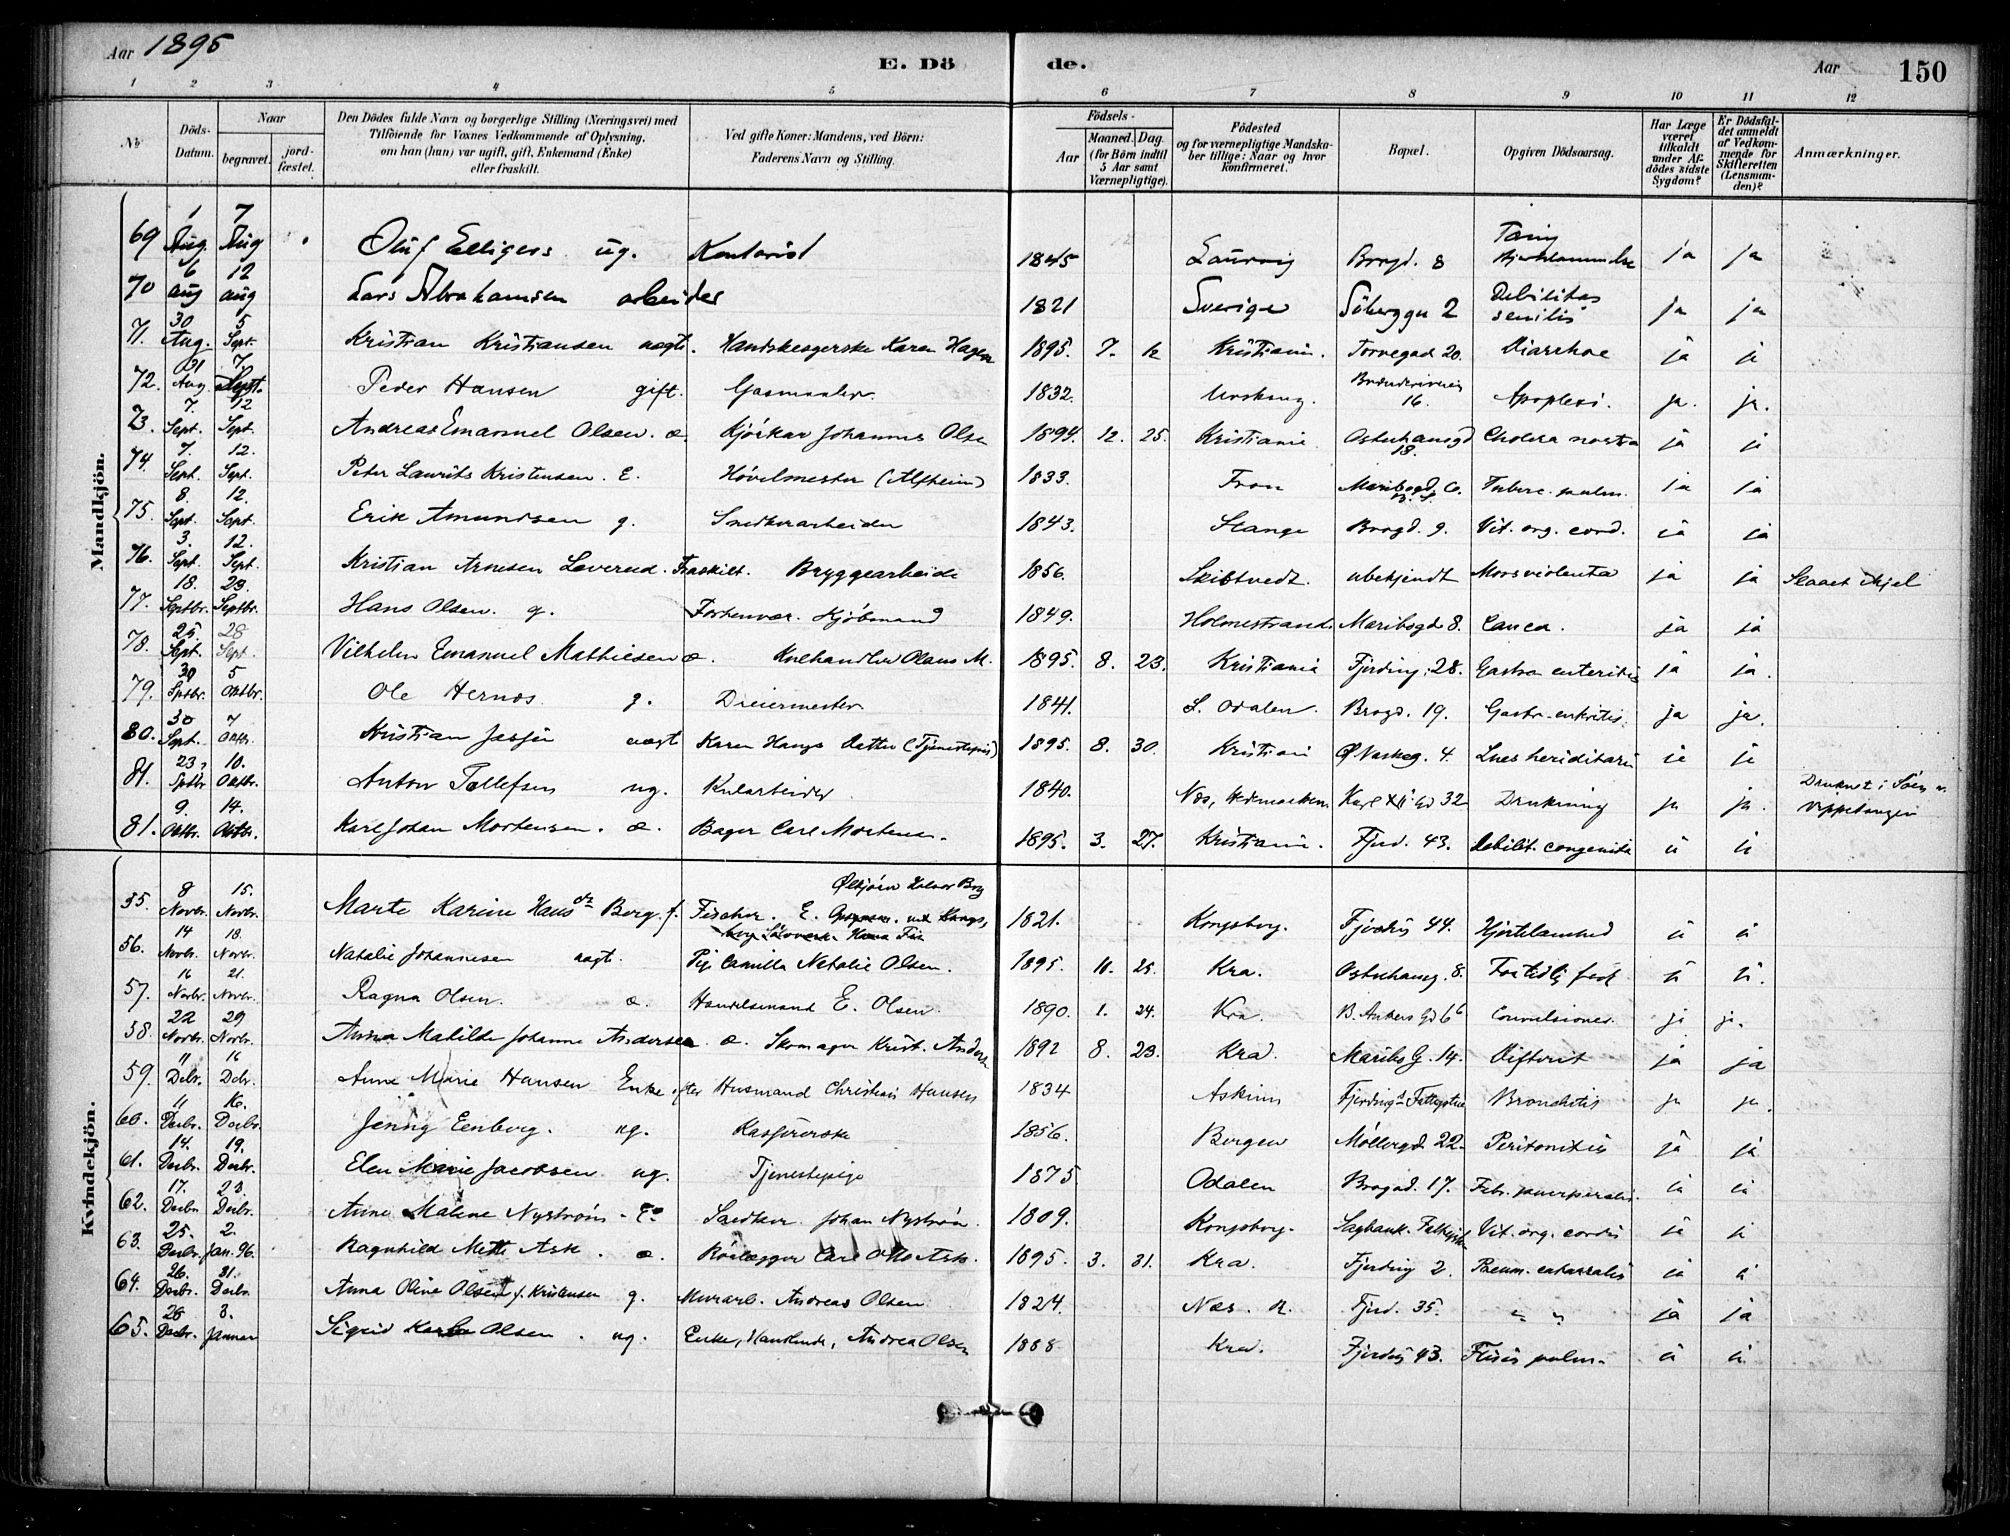 Aar 1895
E. Dö
de.
Aar
150
1 2 3 4 5 6 7 8 9 10 11 12
No
Döds-Datum.
Naar
begravet.
jord-fæstet.
Den Dödes fulde Navn og borgerlige Stilling (Næringsvei) med
Tilföiende for Voxnes Vedkommende af Oplysning,
om han (hun) var ugift, gift, Enkemand (Enke)
eller fraskilt.
Ved gifte Koner: Mandens, ved Börn:
Faderens Navn og Stilling.
Födsels-
Aar
Maaned. Dag.
(for Börn indtil
5 Aar samt
Værnepligtige).
Födested
og for værnepligtige Mandska-
ber tillige: Naar og hvor
konfirmeret.
Bopæl.
Opgiven Dödsaarsag.
Har Læge
været
tilkaldt
under Af-
dödes sidste
Sygdom?
Er Dödsfal-
det anmeldt
af Vedkom-
mende for
Skifteretten
(Lensman-
den)?
Anmærkninger.
Mandkjön.
69 1 Aug. 7 Aug Oluf Elligers ug. Kontorist 1845 Laurvig Brogd. 8 Tæring ja ja
70 6 aug 12 aug Lars Abrahamsen arbeider 1821 Sverige 2 Debilitas senilis ja ja
71. 30 Aug. 5 Sept. Kristian Kristiansen uegte. Karen Hagen 1895. 7. 12 Kristiania. Torvegad 20. Diarrhoe ja ja
72. 31 Aug. 7. Sept. Peder Hansen gift. 1832. Urskoug. 16. Apoplexi. ja. ja.
73. 7. Sept. 12 Sept. Andreas Emanuel Olsen. æ. Johannes Olsen 1894. 12. 25. Kristiania 18. Cholera nostra ja ja
74. 7. Sept. 12. Sept. Peter Laurits Kristensen. E. Hövelmester (Alfheim) 1833. Fron Tuberc. pulm. ja ja
75. 8. Sept. 12. Sept. Erik Amundsen g. Snedkerarbeider 1843. Stange Brogd. 9. Vit. org. cord. ja ja
76. 3. Sept. 12. Sept. Kristian Arnesen Fraskilt. Bryggearbeide 1856. Skibtvedt. ubekjendt Mors violenta ja ja Slaaet ihjel
77. 18. Septbr. 23. Septbr. Hans Olsen. g. Forhenvær. Kjöbmand 1849. Holmestrand. Maribogd 8. Cancer. ja ja
78. 25. Sept. 28 Sept. Vilhelm Emanuel Mathiesen æ. Kulhandler Olaus M. 1895. 8. 23. Kristiania Fjerding. 28. Gastro enteritis ja ja.
79. 30 Sptbr. 5 Oktbr. Ole Hernæs g. Dreiermester 1841. S. Odalen. Brogd. 19. Gastr. enteritis. ja ja.
80. 30 Sept. 7 Oktbr. Kristian uegt Karen (Tjenestepige) 1895. 8. 30. Kristiani 4. Lues heriditaria ja ja
81. 23. Sptbr 10. Oktbr. Anton Tollefsen ug. Kularbeider. 1840. Næs, Hedemarken. Karl XII Gd 32 Drukning ja ja. Druknet i Söen v. Vippetangen
81. 9. Oktbr. 14. Oktbr. Karl Johan Mortensen. æ. Bager Carl Mortensen. 1895. 3. 27. Kristiania. Fjerd. 43. Debilit. congenita ja ja
Kvindekjön.
55. 8 Novbr. 15. Novbr. Marte Karine Hans dr Berg. f. Fischer. E. 1821. Kongsberg. Fjerding 44. Hjertelamhed ja ja
56. 14 Novbr. 18. Novbr. Natalie Johannesen uegte. Pige Camilla Natalie Olsen. 1895. 10. 25. Kra. 8. For tidlig født ja ja.
57. 16 Novbr. 21. Novbr. Ragna Olsen. æ. Handelsmand E. Olsen. 1890. 1. 24. Kra. B. Ankers Gd 6 b Convulsioner. ja ja.
58. 22 Novbr. 29 Novbr. Anna Matilde Johanne Andersen. æ. Skomager Krist. Anders 1892 8. 23. Kra. Maribo G. 14. Difterit ja ja
59. 11 Debr. 16 Debr. Anne Marie Hansen Enke efter Husmand Christian Hansen 1834 Askim Bronchitis ja ja.
60. 11 Decbr. 16. Decbr. Jenny Eenberg. ug. Kassererske 1856. Bergen Möllergd 22 Peritonitis ja ja
61. 14. Decbr. 19. Decbr. Elen Marie Jacobsen ug. Tjenestepige 1875 Odalen Brogad. 17. Febr. puerperalis. ja ja
62. 17. Decbr 23. Decbr. Anne Malene Nyström - E. Snedker Johan Nyström. 1809. Kongsberg. Vit. org. cordis ja ja
63. 25. Decbr. 2. Jan. 96. Ragnhild Mette Ask. æ. Rörlægger Carl Otto Ask. 1895. 3. 31. Kra. Fjerding 2. Pneum. catarralis ja ja
64. 26. Decbr. 31. Decbr. Anna Oline Olsen f. Kristensen g. Murarb. Andreas Olsen 1824. Næs. R. Fjerd. 35. " " ja ja
65. 28 Decbr. 3. Januar Sigrid Olsen. ug. Enke, Andrea Olsen 1888 Kra. Fjerding 43. Ftisis pulm. ja ja